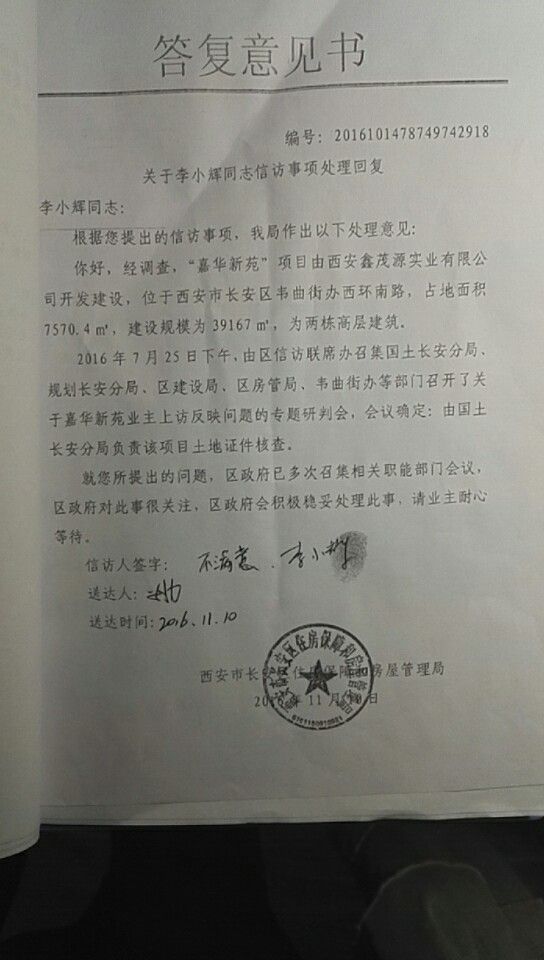 答复意见书
编号：2016101478749742918
关于李小辉同志信访事项处理回复
李小辉同志：
根据您提出的信访事项，我局作出以下处理意见：
你好，经调查，“嘉华新苑”项目由西安鑫茂源实业有限公
司开发建设，位于西安市长安区韦曲街办西环南路，占地面积
7570.4㎡，建设规模为39167㎡，为两栋高层建筑。
2016年7月25日下午，由区信访联席办召集国土长安分局、
规划长安分局、区建设局、区房管局、韦曲街办等部门召开了关
于嘉华新苑业主上访反映问题的专题研判会，会议确定：由国土
长安分局负责该项目土地证件核查。
就您所提出的问题，区政府已多次召集相关职能部门会议，
区政府对此事很关注，区政府会积极稳妥处理此事，请业主耐心
等待。
信访人签字：不满意．李小辉
送达人：
送达时间：2016.11.10
西安市长安区住房保障和房屋管理局
年11月 日